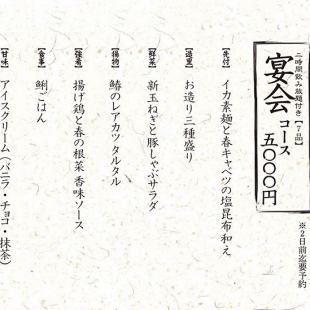 二時間飲み放題付き【7品】
宴会コース
五〇〇〇円
※2日前迄要予約
【先付】
イカ素麺と春キャベツの塩昆布和え
【造里】
お造り三種盛り
【鮮菜】
新玉ねぎと豚しゃぶサラダ
【揚物】
鰆のレアカツタルタル
【強肴】
揚げ鶏と春の根菜 香味ソース
【食事】
鯏ごはん
【甘味】
アイスクリーム(バニラ・チョコ・抹茶)